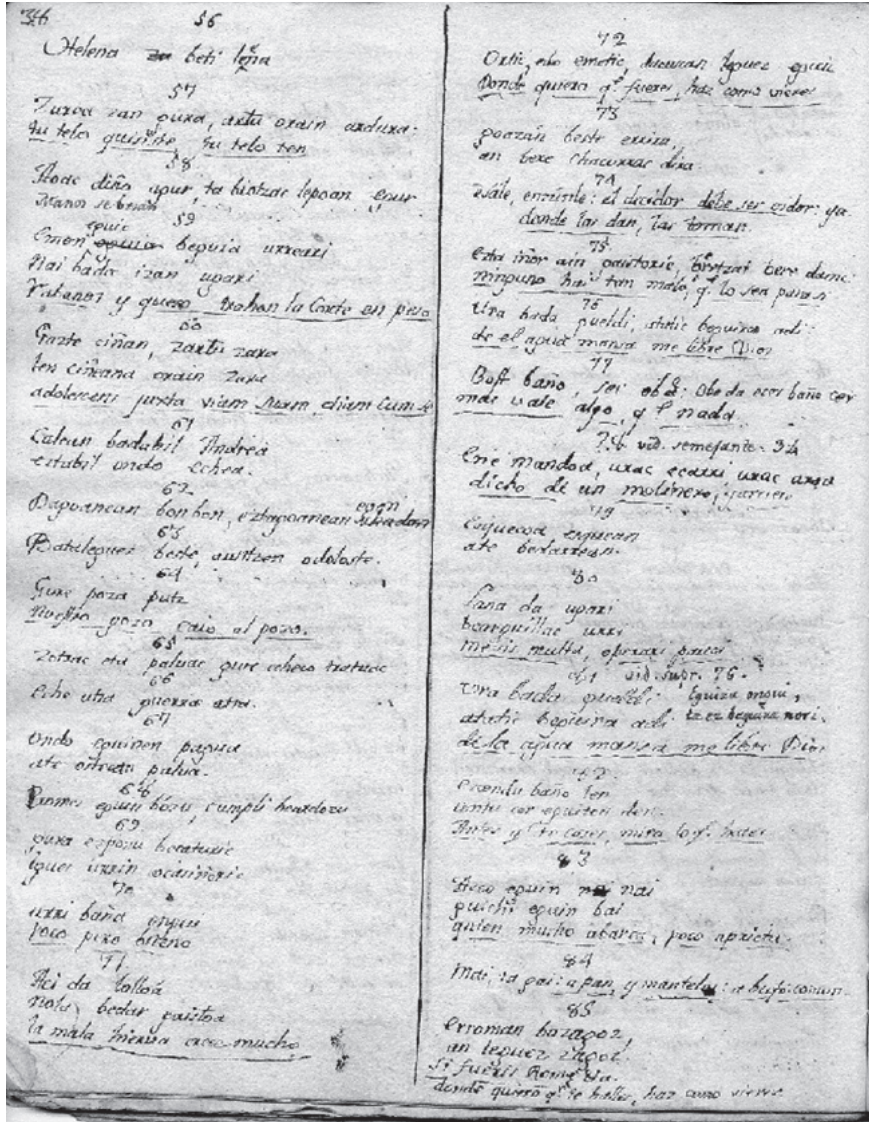 346
56
Helena beti leña
57
Zuroa zan gura, artu orain ardura:
tu telo quisiste, tu telo ten
58
Aoac diño apur, ta biotzac lepoan egur
Manos
59
Emon eguic beguia urreari
Nai bada izan ugari
y queso la Corte en peso
60
Gazte ciñan, zartu zara
len ciñeana orain zara
adolescens juxta viam suam, etiam cum
61
Calean badabil Andrea
eztabil ondo echea.
62
Dagoanean bonbon, eztagoanean egon
63
Bataleguez beste,
64
Gure poza putz
Nuestro gozo caio al pozo.
65
Zotzac eta paluac gure echeco tratuac
66
Eche utsa guerra atsa.
67
Ondo eguinen pagua
ate ostean palua.
68
Promes eguin bozu, cumpli bearkozu
69
gura ezpozu becaturic
igues urrin ocasiñoric
70
urri baña ongui
Poco pero bueno
71
Aci da lolloa
Nola bedar gaistoa
la mala hierva crece mucho
72
Ortic, edo emetic, docucun leguez eguic
Donde quiera q.e fueres, haz como vieres
73
goazan beste errira,
an bere chacurrac dira.
74
Esale, enzunle: el decidor debe ser oidor: ya
donde las dan, las toman.
75
Ezta iñor ain gaistoric, beretzat bere danic:
ninguno hai tan malo, q.e lo sea para si
76
Ura bada gueldi, atatic beguira adi:
de el agua mansa me libre Dios
77
Bost baño, sei obe: Obe da ecer baño cer
mas vale algo, q.e nada.
78 vid. semejante. 34
Ene mandoa, urac ecarri, urac aroa
dicho de un molinero,
79
Esquecoa esquean
ate
80
Lana da ugari
beargillac urri
Messis multa, operarii pauci
81 vid. supr. 76.
Ura bada gueldi: Eguizu ongui,
atatic beguira adi: ta ez beguira nori.
de la agua mansa me libre Dios
82
Ezcondu baño len
contu cer eguiten den.
Antes q.e te cases, mira lo q. haces
83
Asco eguin nai nai
guichi eguin bai
quien mucho abarca, poco aprieta.
84
Mai, ta gai: a pan, y manteles: a bufe comun.
85
Erroman bazagoz,
an leguez zagoz.
Si fueris Romę
donde quiera q.e te halles, haz como vieres